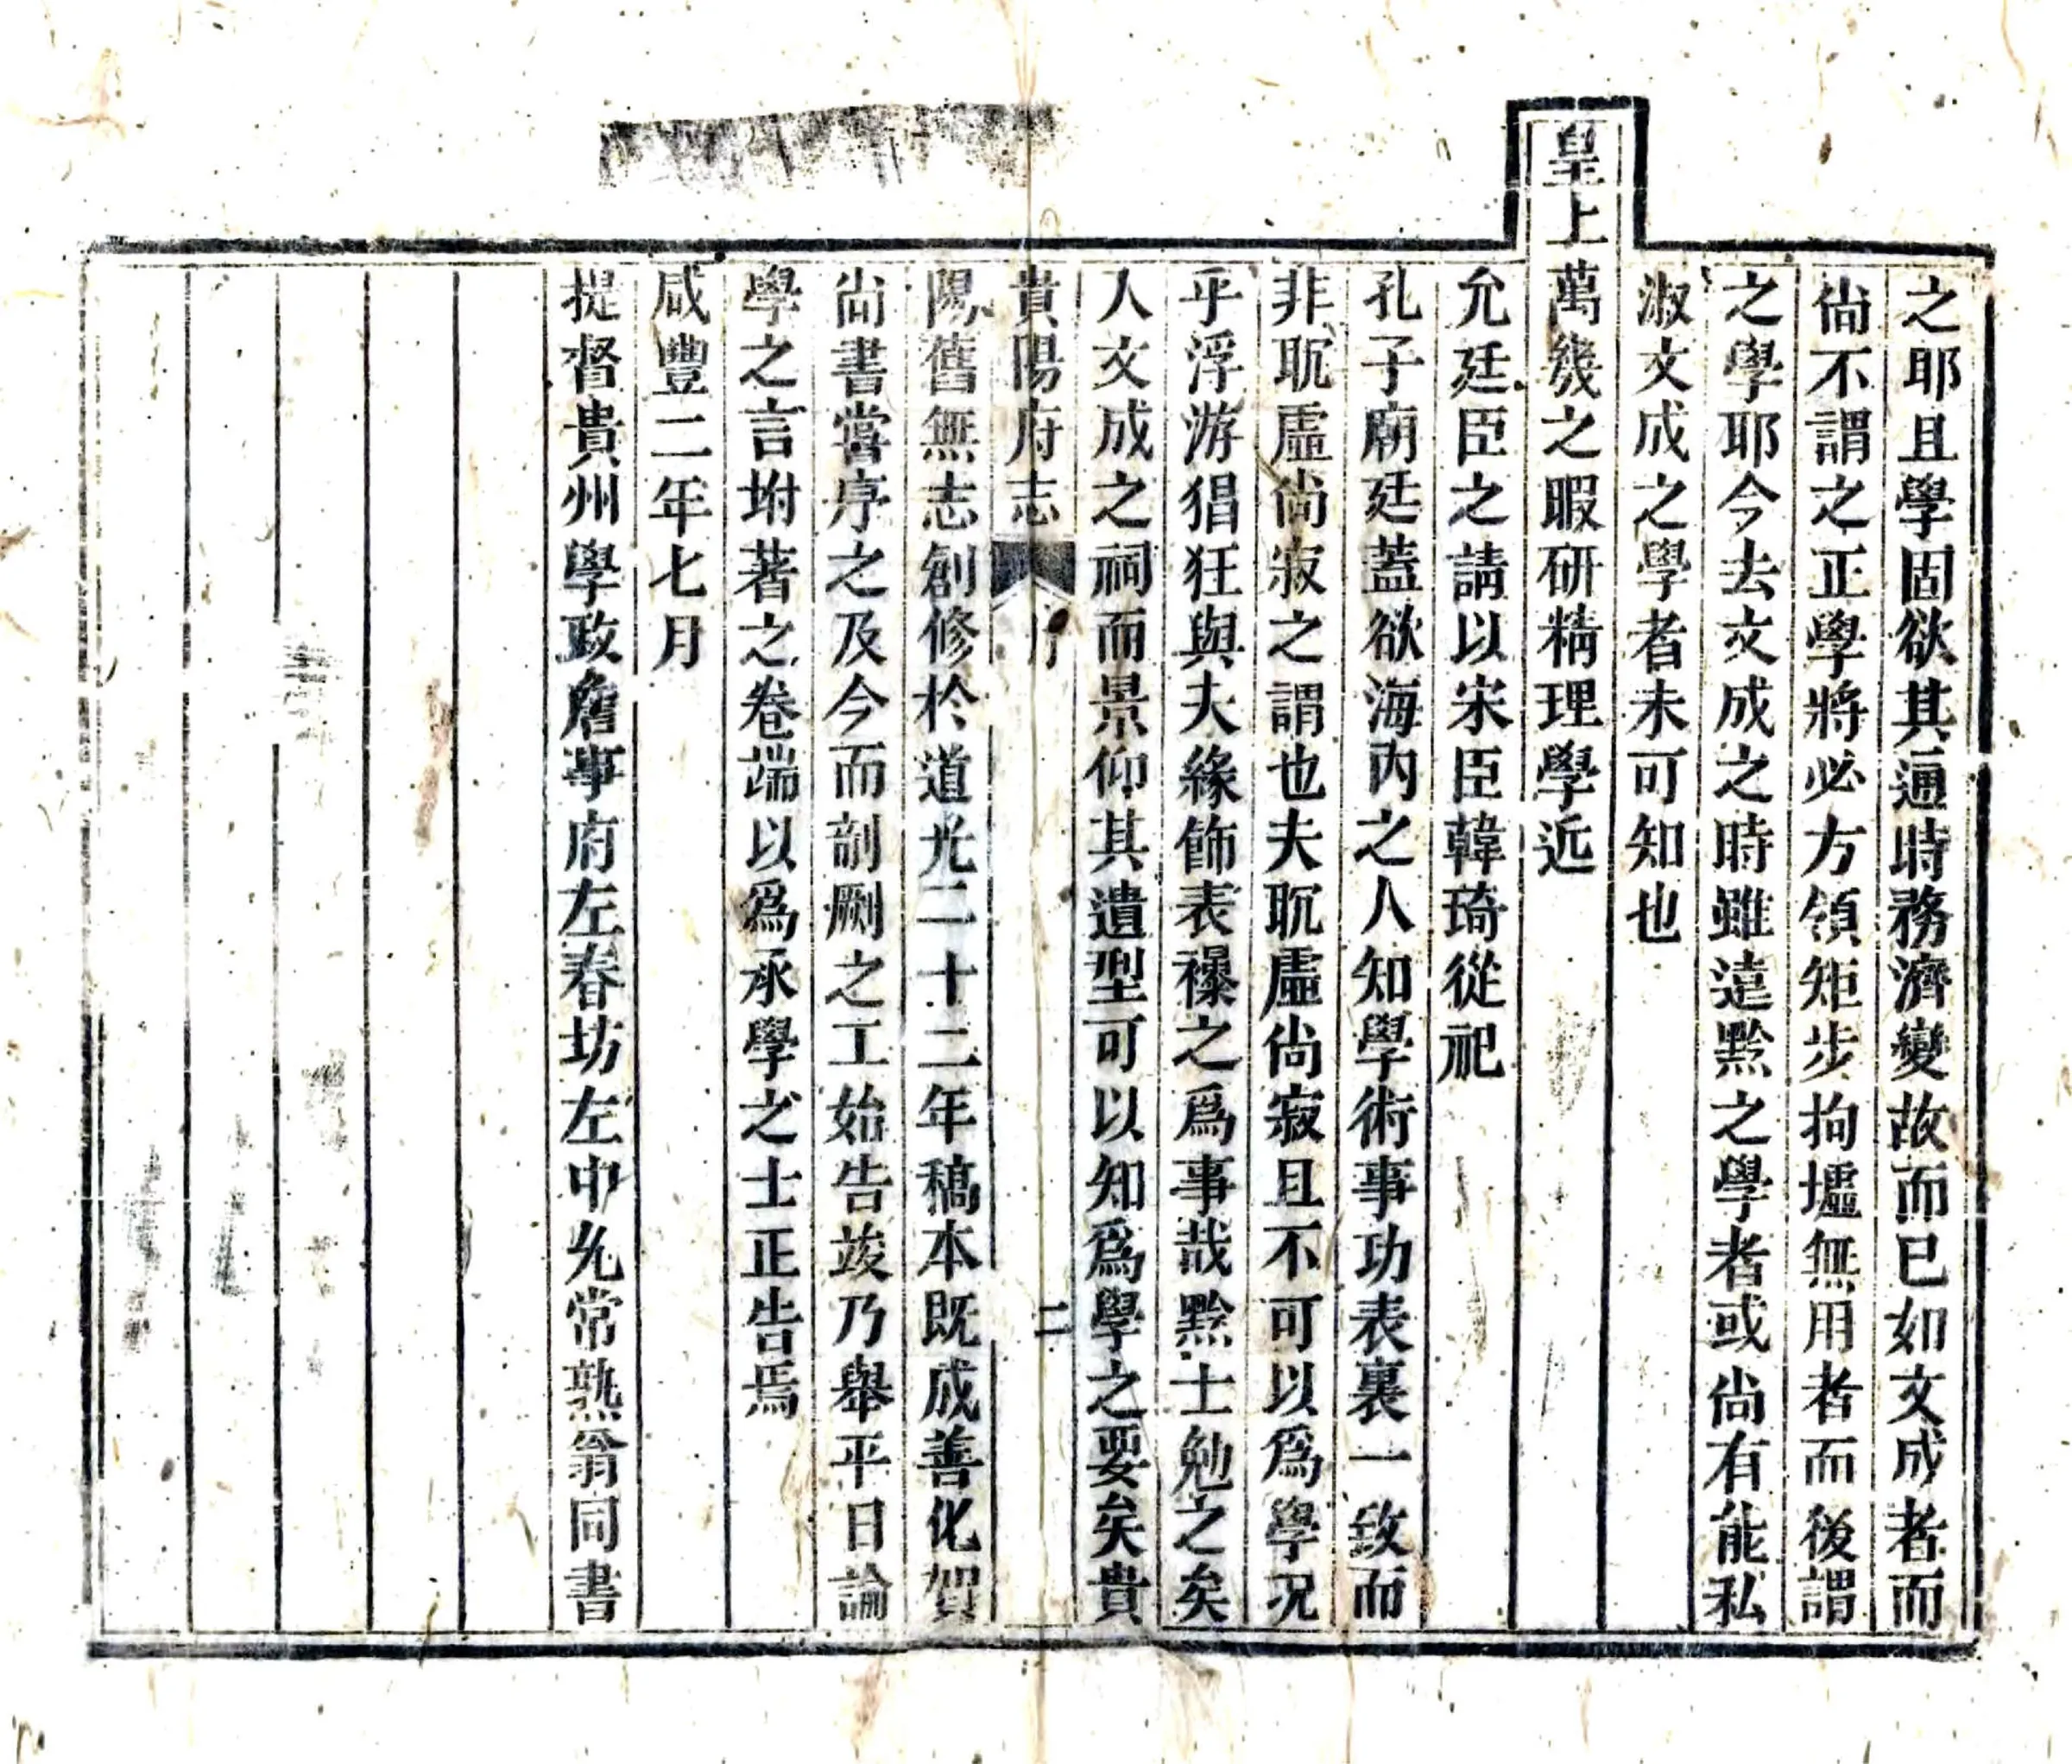 之耶且學固欲其通時務濟變故而已如文成者而
尙不謂之正學將必方領矩步拘墟無用者而後謂
之學耶今去文成之時雖遠黔之學者或尙有能私
淑文成之學者未可知也
皇上萬幾之暇研精理學近
允廷臣之請以宋臣韓琦從祀
孔子廟廷蓋欲海內之人知學術事功表裏一致而
非耽虛尙寂之謂也夫耽虛尙寂且不可以爲學況
乎浮游猖狂與夫緣飾表襮之爲事哉黔士勉之矣
人文成之祠而景仰其遺型可以知爲學之要矣貴
貴陽府志
序
二
陽舊無志創修於道光二十二年稿本既成善化賀
尙書嘗序之及今而剞劂之工始告竣乃舉平日論
學之言坿著之卷端以爲承學之士正告焉
咸豐二年七月
提督貴州學政詹事府左春坊左中允常熟翁同書